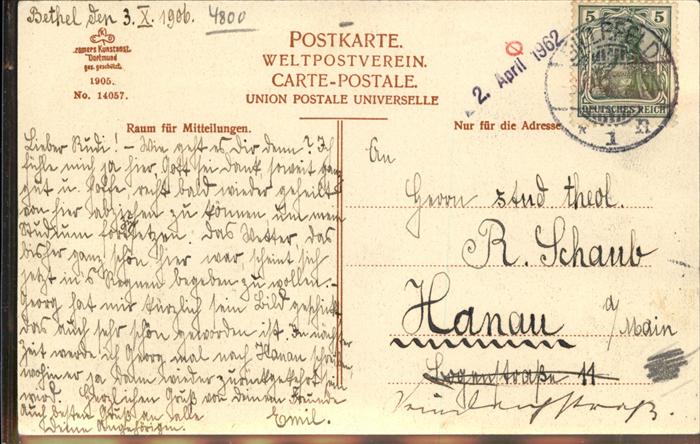 Bethel den 3. X. 1906.
4800
Cramers Kunstanst.
Dortmund
ges. geschützt.
1905.
No. 14057.
POSTKARTE.
WELTPOSTVEREIN.
CARTE-POSTALE.
UNION POSTALE UNIVERSELLE
2. April 1962
5 5
DEUTSCHES REICH
* 1 n
Raum für Mitteilungen.
Nur für die Adresse.
Lieber Rudi! – Wie geht es Dir denn? Ich
fühle mich ja hier, Gott sei Dank soweit ganz
gut u. hoffe, recht bald wieder geheilt
von hier abziehen zu können, um mein
Studium fortzusetzen. Das Wetter, das
bisher ganz schön hier war, scheint sich
jetzt in's Regnen begeben zu wollen. –
Georg hat mir kürzlich sein Bild geschickt
das auch sehr schön geworden ist. In nächster
Zeit werde ich Georg mal nach Hanau schreiben
wohin er ja dann wieder zurückgekehrt sein
wird. Herzlichen Gruß von Deinem Freunde
Auch besten Gruß an alle Emil.
Deine Angehörigen.
An
Herrn stud theol.
R. Schaub
Hanau a/Main
Logenstraße 11